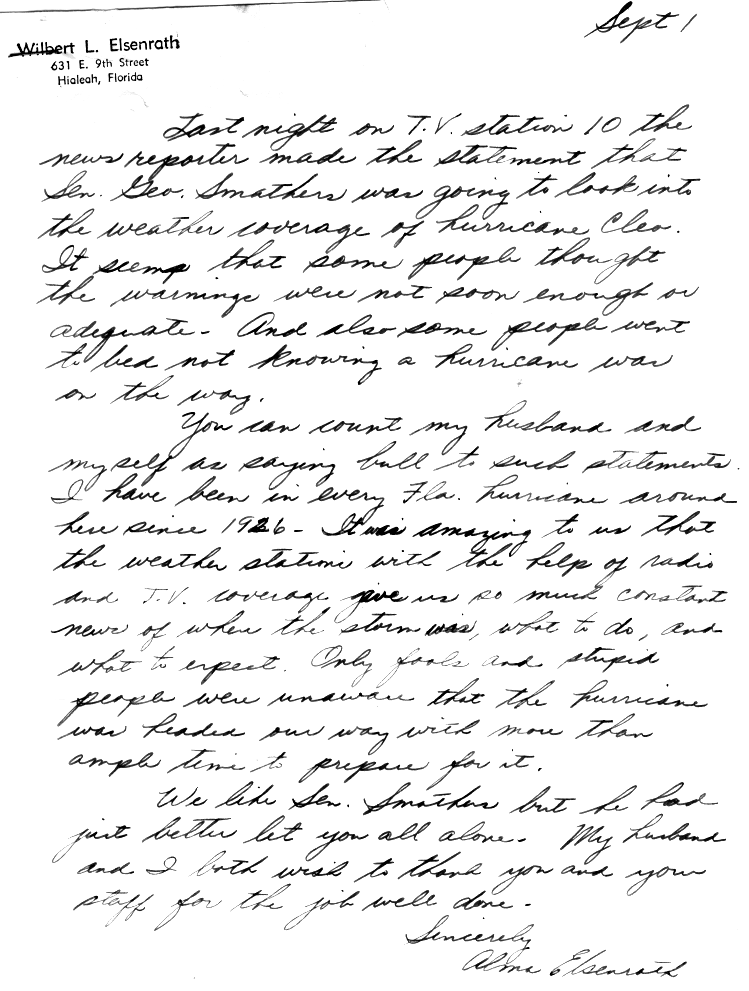 Sept 1
Wilbert L. Elsenrath
631 E. 9th Street
Hialeah, Florida
Last night on T.V. station 10 the
news reporter made the statement that
Sen. Geo. Smathers was going to look into
the weather coverage of hurricane Cleo.
It seems that some people thought
the warnings were not soon enough or
adequate - And also some people went
to bed not knowing a hurricane was
on the way.
You can count my husband and
myself as saying bull to such statements.
I have been in every Fla. hurricane around
here since 1926 - It was amazing to us that
the weather stations with the help of radio
and T.V. coverage give us so much constant
news of where the storm was, what to do, and
what to expect. Only fools and stupid
people were unaware that the hurricane
was headed our way with more than
ample time to prepare for it.
We like Sen. Smathers but he had
just better let you all alone. My husband
and I both wish to thank you and your
staff for the job well done.
Sincerely
Alma Elsenrath